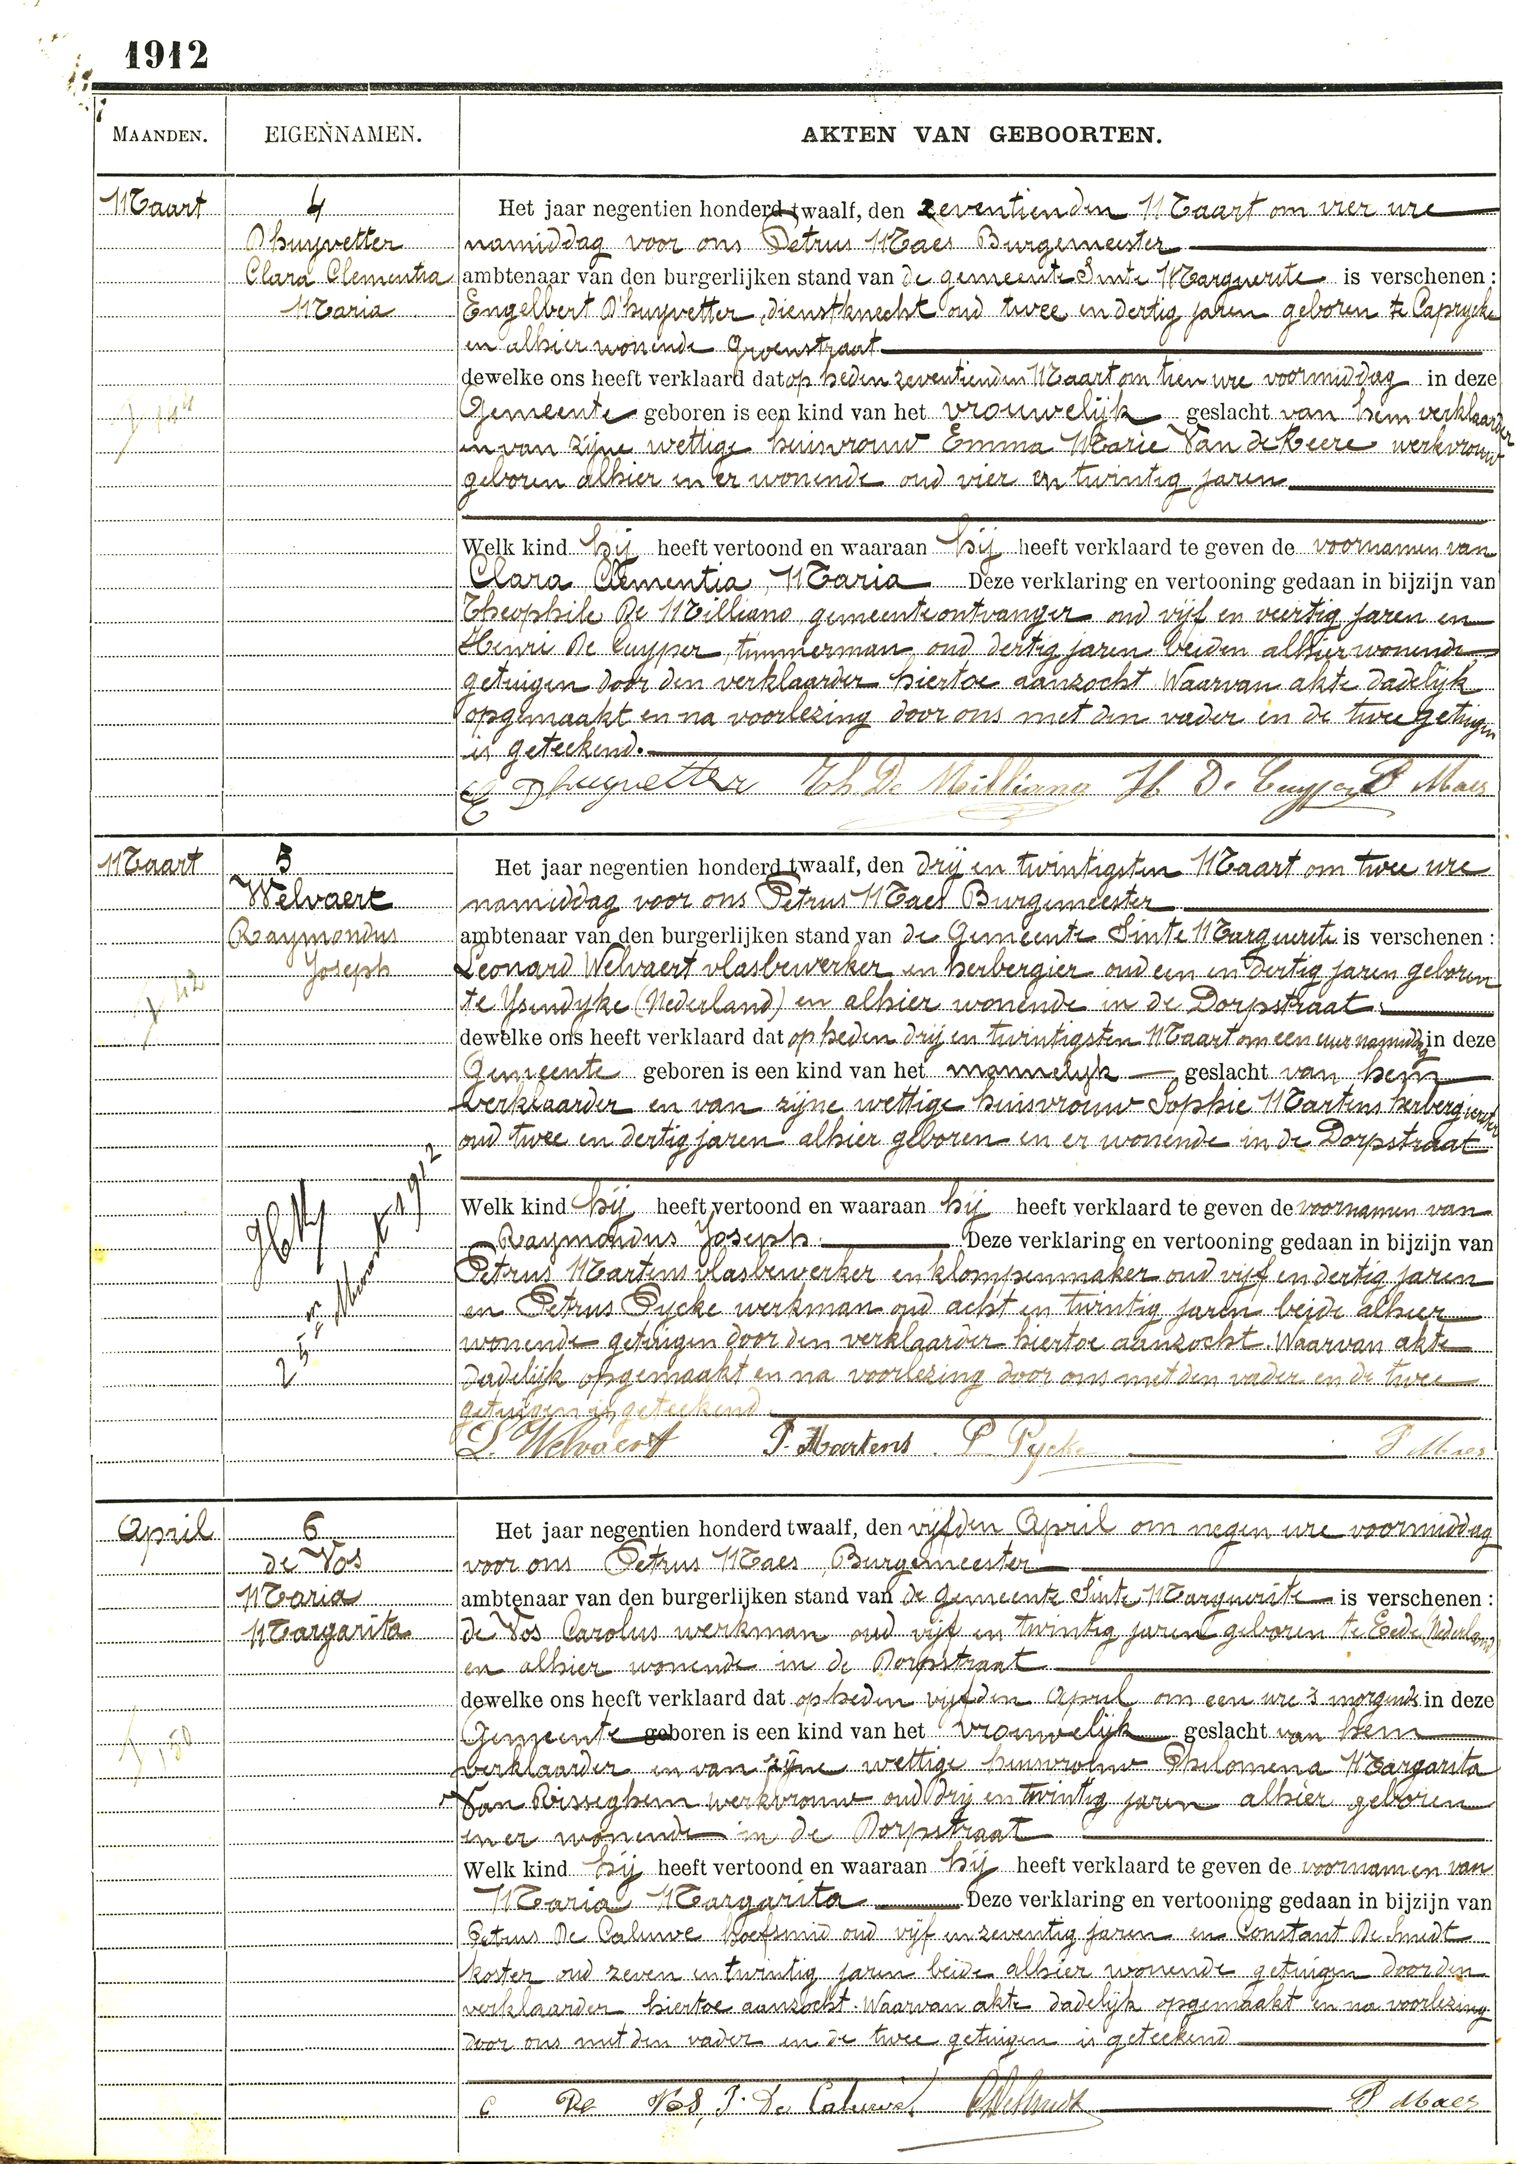 1912
MAANDEN.
EIGENNAMEN.
AKTEN VAN GEBOORTEN.
Maart
4
D'huyvetter
Clara Clementia
Maria
Het jaar negentien honderd twaalf, den zeventienden Maart om vier ure
namiddag voor ons Petrus Maes Burgemeester
ambtenaar van den burgerlijken stand van de gemeente Sinte Marguerite is verschenen :
Engelbert D'huyvetter, dienstknecht oud twee en dertig jaren geboren te Caprycke
en alhier wonende Groenstraat
dewelke ons heeft verklaard dat op heden zeventienden Maart om tien ure voormiddag in deze
Gemeente geboren is een kind van het vrouwelijk geslacht van hem verklaarder
en van zijne wettige huisvrouw Emma Marie Van de Keere werkvrouw
geboren alhier en er wonende oud vier en twintig jaren
Welk kind hij heeft vertoond en waaraan hij heeft verklaard te geven de voornamen van
Clara, Clementia, Maria Deze verklaring en vertooning gedaan in bijzijn van
Theophile De Milliano gemeenteontvanger oud vijf en veertig jaren en
Henri De Cuyper, timmerman oud dertig jaren beiden alhier wonende
getuigen door den verklaarder hiertoe aanzocht. Waarvan akte dadelijk
opgemaakt en na voorlezing door ons met den vader en de twee getuigen
is geteekend.
E Dhuyvetter Th De Milliano H De Cuyper P Maes
Maart
5
Welvaert
Raymondus
Joseph
25en Maart 1912
Het jaar negentien honderd twaalf, den drij en twintigsten Maart om twee ure
namiddag voor ons Petrus Maes Burgemeester
ambtenaar van den burgerlijken stand van de Gemeente Sinte Marguerite is verschenen :
Leonard Welvaert vlasbewerker en herbergier oud een en dertig jaren geboren
te Ysendyke (Nederland) en alhier wonende in de Dorpstraat
dewelke ons heeft verklaard dat op heden drij en twintigsten Maart om een uur namiddag in deze
Gemeente geboren is een kind van het mannelijk geslacht van hem
verklaarder en van zijne wettige huisvrouw Sophie Martens herbergierster
oud twee en dertig jaren alhier geboren en er wonende in de Dorpstraat
Welk kind hij heeft vertoond en waaraan hij heeft verklaard te geven de voornamen van
Raymondus Joseph Deze verklaring en vertooning gedaan in bijzijn van
Petrus Martens vlasbewerker en klompenmaker oud vijf en dertig jaren
en Petrus Pycke werkman oud acht en twintig jaren beide alhier
wonende getuigen door den verklaarder hiertoe aanzocht. Waarvan akte
dadelijk opgemaakt en na voorlezing door ons met den vader en de twee
getuigen is geteekend.
L. Welvaert P. Martens P Pycke P Maes
April
6
de Vos
Maria
Margarita
Het jaar negentien honderd twaalf, den vijfden April om negen ure voormiddag
voor ons Petrus Maes, Burgemeester
ambtenaar van den burgerlijken stand van de gemeente Sinte Marguerite is verschenen :
de Vos Carolus werkman oud vijf en twintig jaren geboren te Eede (Nederland)
en alhier wonende in de Dorpstraat
dewelke ons heeft verklaard dat op heden vijfden April om een ure 's morgends in deze
Gemeente geboren is een kind van het vrouwelijk geslacht van hem
verklaarder en van zijne wettige huisvrouw Philomena Margarita
Van Risseghem werkvrouw oud drij en twintig jaren alhier geboren
en er wonende in de Dorpstraat
Welk kind hij heeft vertoond en waaraan hij heeft verklaard te geven de voornamen van
Maria Margarita Deze verklaring en vertooning gedaan in bijzijn van
Petrus De Caluwe hoefsmid oud vijf en zeventig jaren en Constant De Smedt
koster oud zeven en twintig jaren beide alhier wonende getuigen door den
verklaarder hiertoe aanzocht. Waarvan akte dadelijk opgemaakt en na voorlezing
door ons met den vader en de twee getuigen is geteekend
C De Vos, P. De Caluwe C De Smedt P Maes